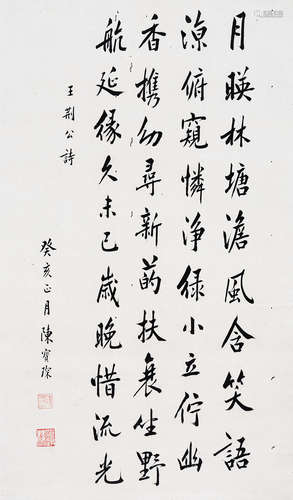 月暎林塘澹風含笑語
涼俯窺憐淨緑小立佇幽
香携幼尋新菂扶衰坐野
航延緣久未已歲晚惜流光
王荆公詩
癸亥正月陳寶琛